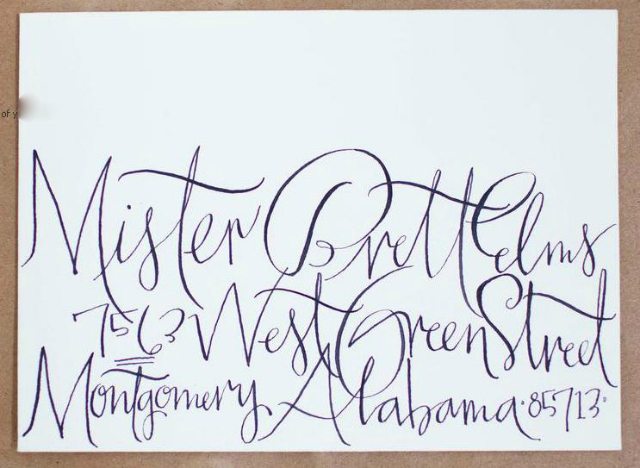 of y
Mister Brett Elms
7563 West Green Street
Montgomery Alabama · 85713 ·